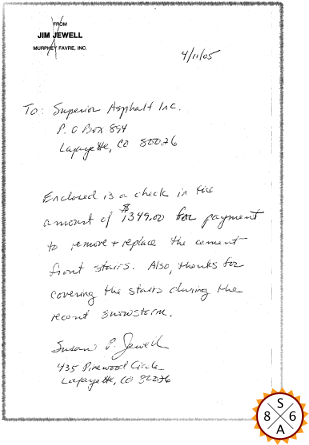 FROM
JIM JEWELL
MURPHEY FAVRE, INC.
4/11/05
To: Superior Asphalt Inc.
P.O Box 894
Lafayette, CO 80026
Enclosed is a check in the
amount of $1349.00 for payment
to remove & replace the cement
front stairs. Also, thanks for
covering the stairs during the
recent snowstorm.
Susan P. Jewell
435 Pinewood Circle
Lafayette, CO
S
8 6
A